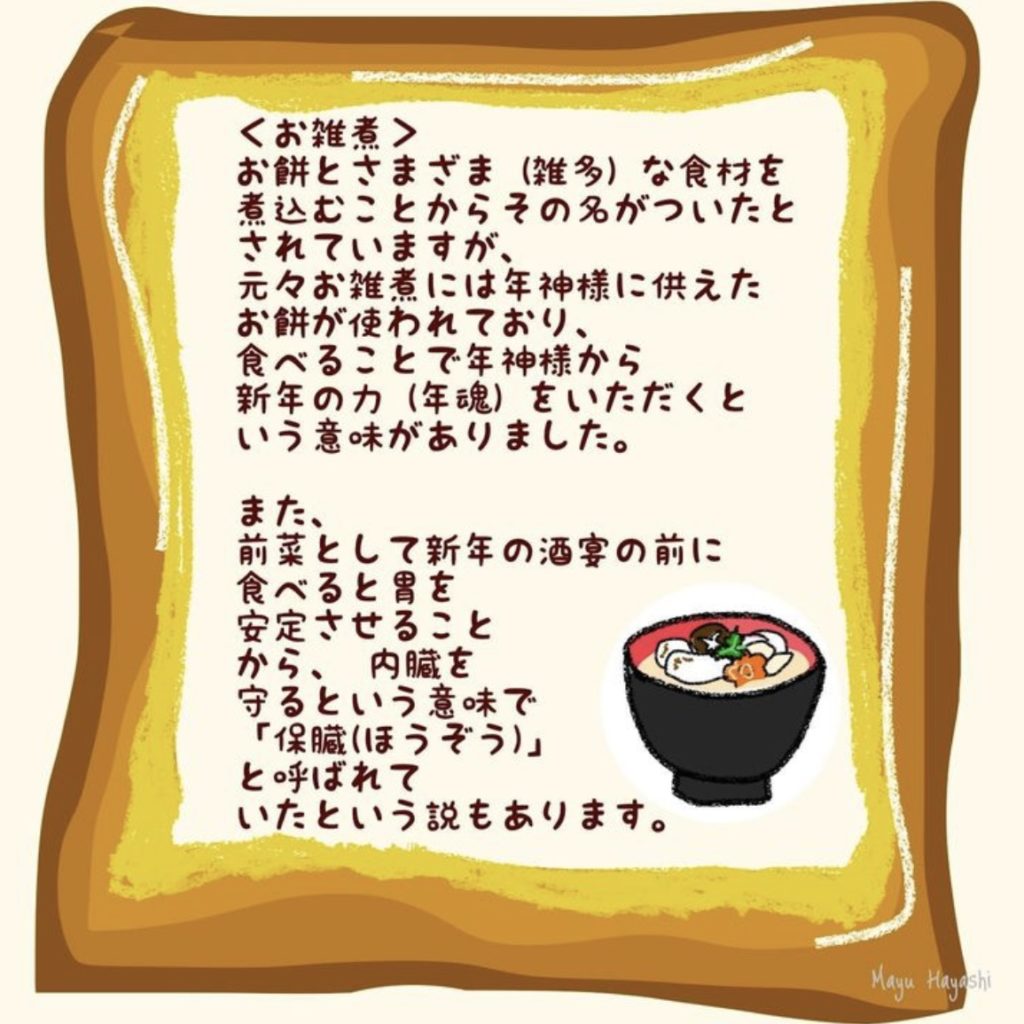 ＜お雑煮＞
お餅とさまざま（雑多）な食材を
煮込むことからその名がついたと
されていますが、
元々お雑煮には年神様に供えた
お餅が使われており、
食べることで年神様から
新年の力（年魂）をいただくと
いう意味がありました。
また、
前菜として新年の酒宴の前に
食べると胃を
安定させること
から、　内臓を
守るという意味で
「保臓(ほうぞう)」
と呼ばれて
いたという説もあります。
Mayu Hayashi